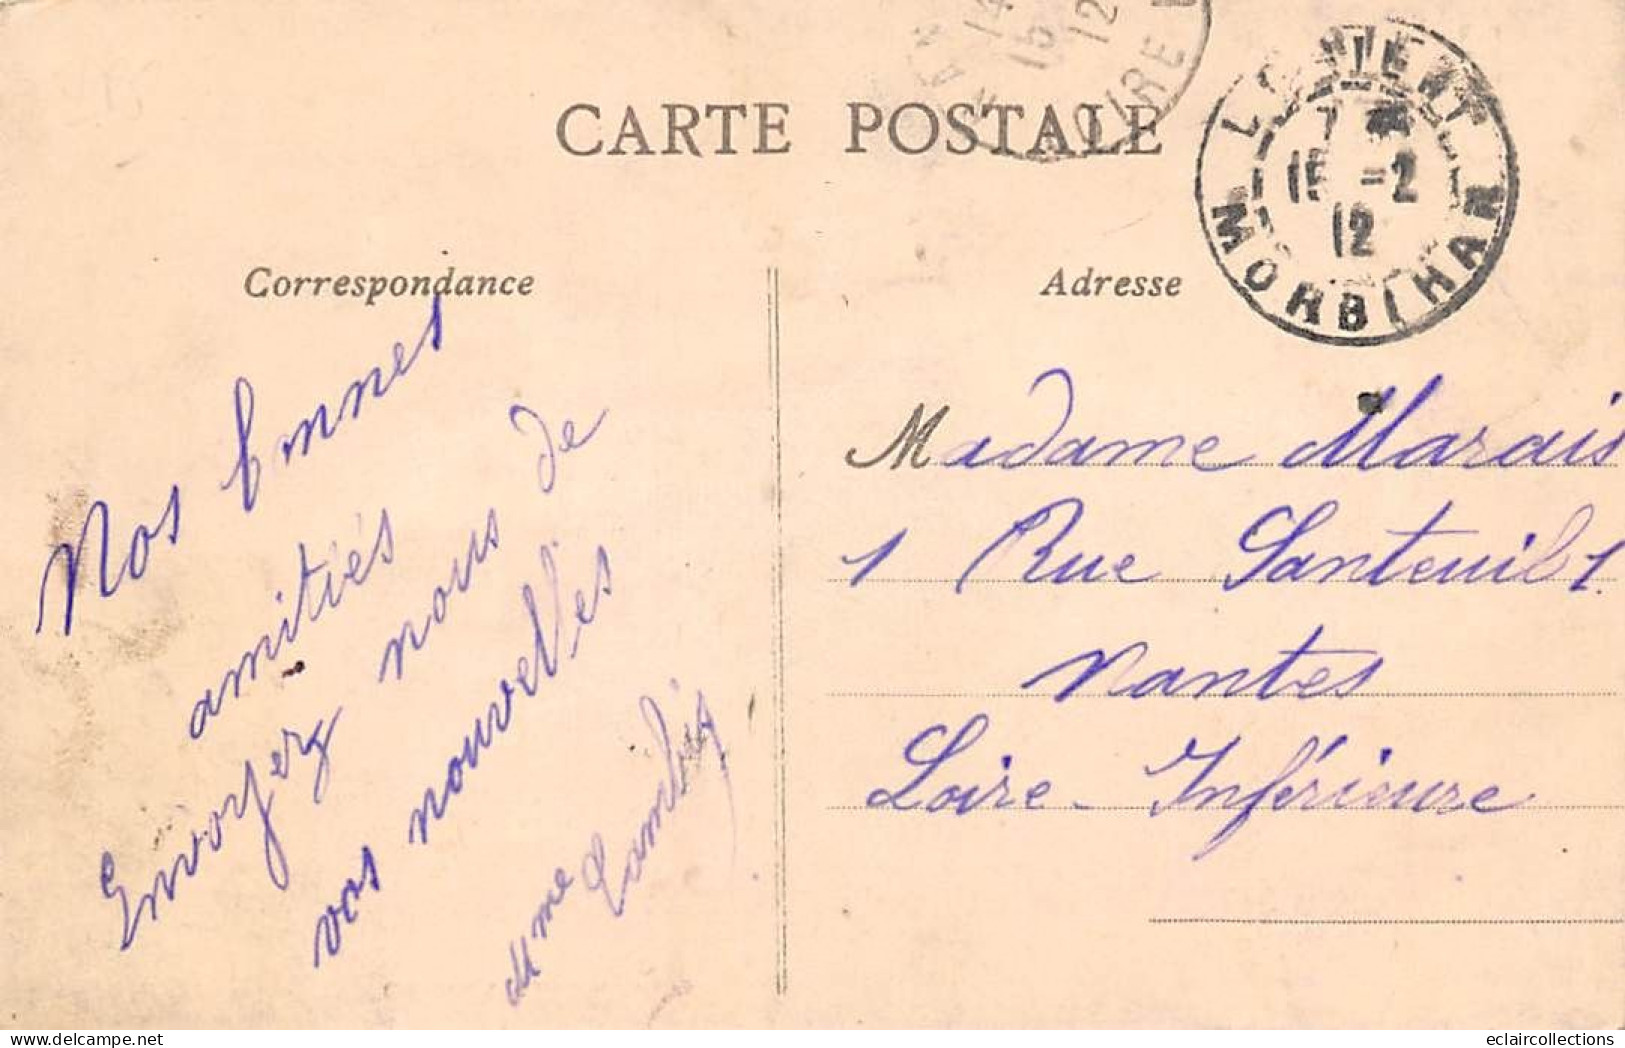 CARTE POSTALE
Correspondance
Adresse
LORIENT
7
15 -2
12
MORBIHAN
15
12
Nos bonnes
amitiés
Envoyez nous de
vos nouvelles
Mme
Madame Marais
1 Rue Santeuil 1
Nantes
Loire-Inférieure
eclaircollections